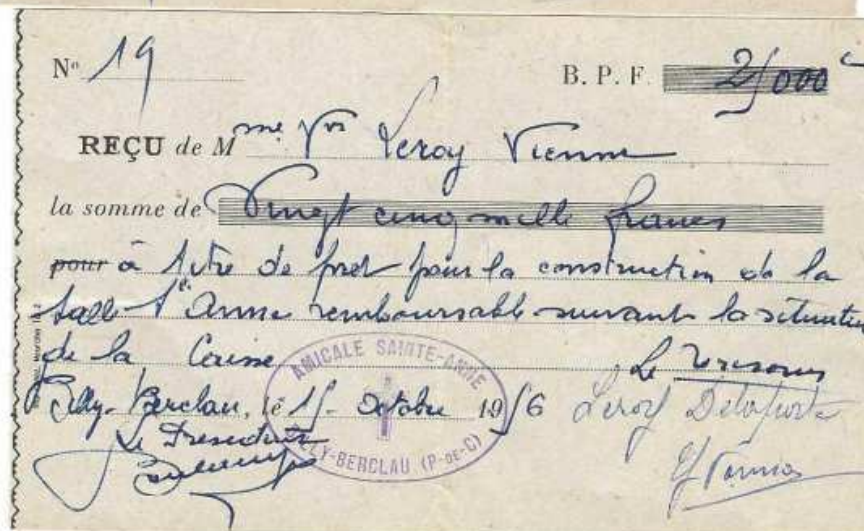 N° 19 B. P. F. 25000
REÇU de Mme Vve Leroy Vienne
la somme de Vingt cinq mille francs
pour à titre de pret pour la construction de la
salle Ste Anne remboursable suivant la situation
de la Caisse Le Tresorier
Billy-Berclau, le 15 Octobre 1956 Leroy Delaporte
Le President
AMICALE SAINTE-ANNE
BILLY-BERCLAU (P-DE-C)